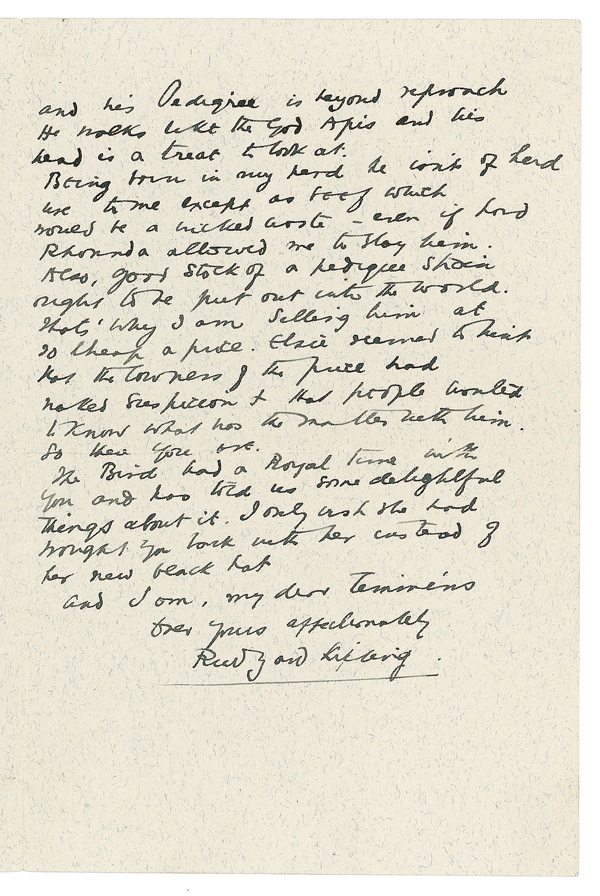 and his Pedigree is beyond reproach
He walks like the God Apis and his
head is a treat to look at.
Being born in my herd he isn't of herd
use to me except as beef which
would be a wicked waste – even if Lord
Rhondda allowed me to slay him.
Also, good stock of a pedigree strain
ought to be put out into the world.
That's why I am selling him at
so cheap a price. Elsie seemed to think
that the lowness of the price had
waked suspicion & that people wanted
to know what was the matter with him.
So there you are.
The Bird had a Royal time with
you and has told us some delightful
things about it. I only wish she had
brought you back with her instead of
her new black hat
and I am, my dear
Ever yours affectionately
Rudyard Kipling.